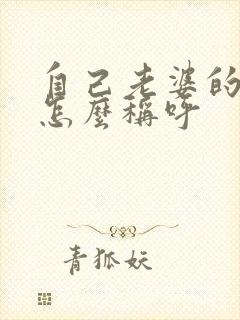 自己老婆的
怎麼稱呼
青狐妖